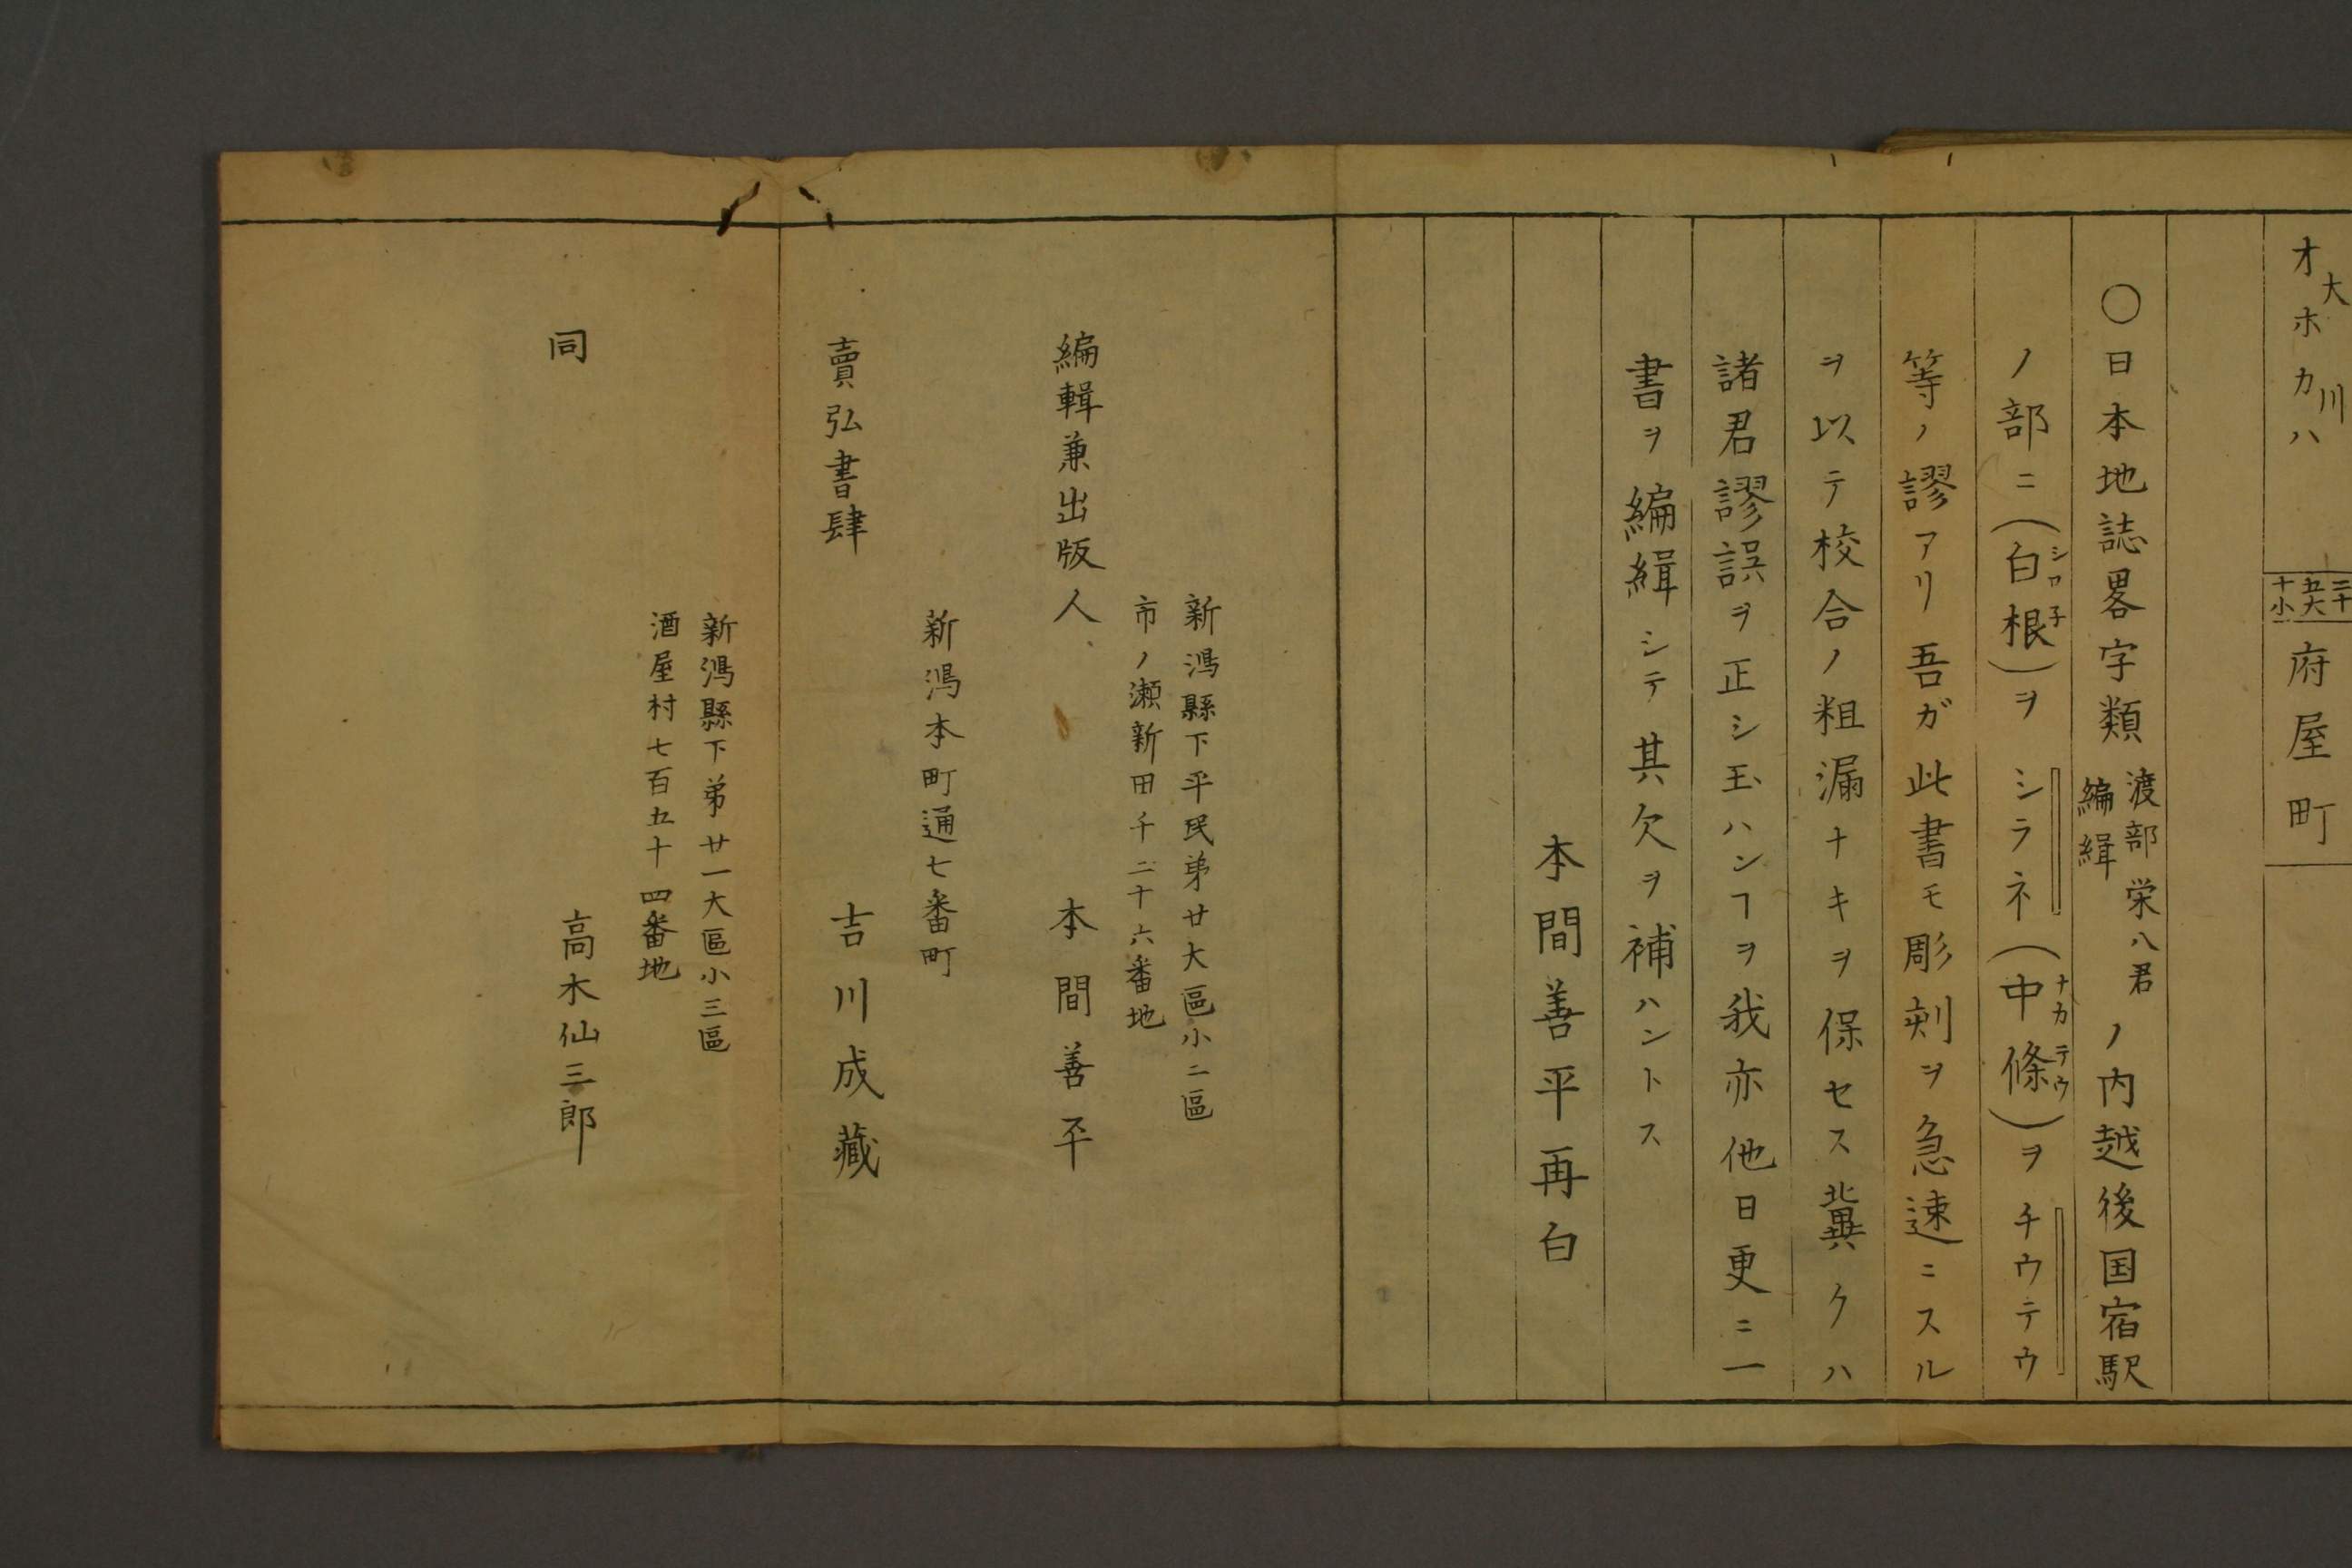 大川
オホカハ
二十
五大
十小
府屋町
〇日本地誌畧字類 渡部栄八君
編緝
ノ内越後国宿駅
ノ部ニ(白根)ヲシラネ(中條)ヲチウテウ
シロ子
ナカテウ
等ノ謬アリ吾ガ此書モ彫刻ヲ急速ニスル
ヲ以テ校合ノ粗漏ナキヲ保セス冀クハ
諸君謬誤ヲ正シ玉ハンヿヲ我亦他日更ニ一
書ヲ編緝シテ其欠ヲ補ハントス
本間善平再白
新潟縣下平民弟廿大區小二區
市ノ瀬新田千二十六番地
編輯兼出版人 本間善平
新潟本町通七番町
賣弘書肆 吉川成藏
新潟縣下弟廿一大區小三區
酒屋村七百五十四番地
同 高木仙三郎